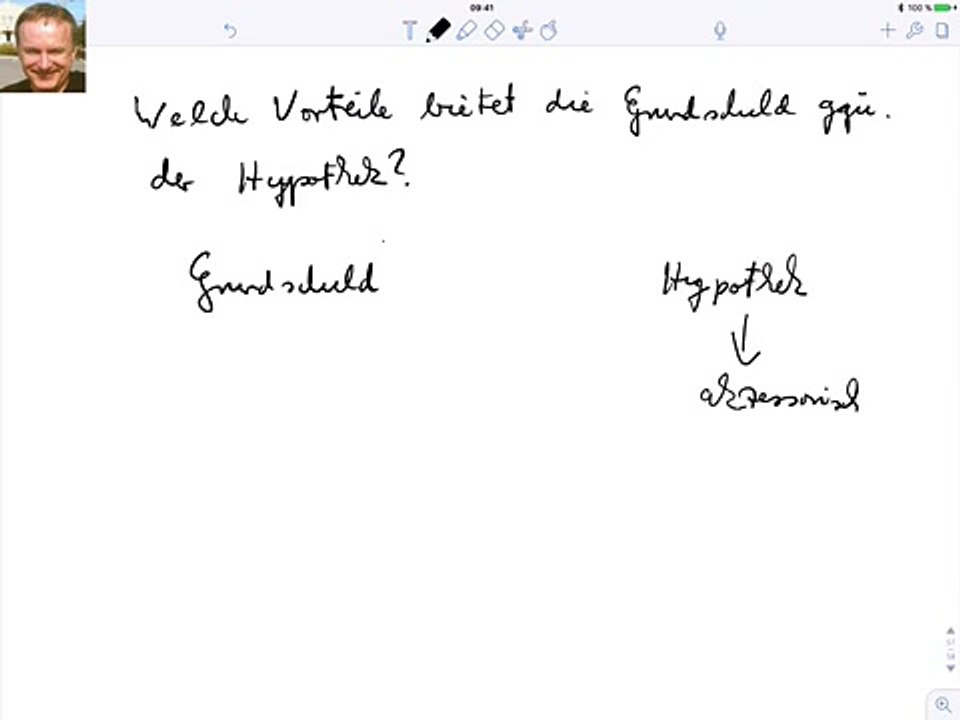 09:41
100 %
Welche Vorteile bietet die Grundschuld ggü.
der Hypothek?
Grundschuld
Hypothek
akzessorisch